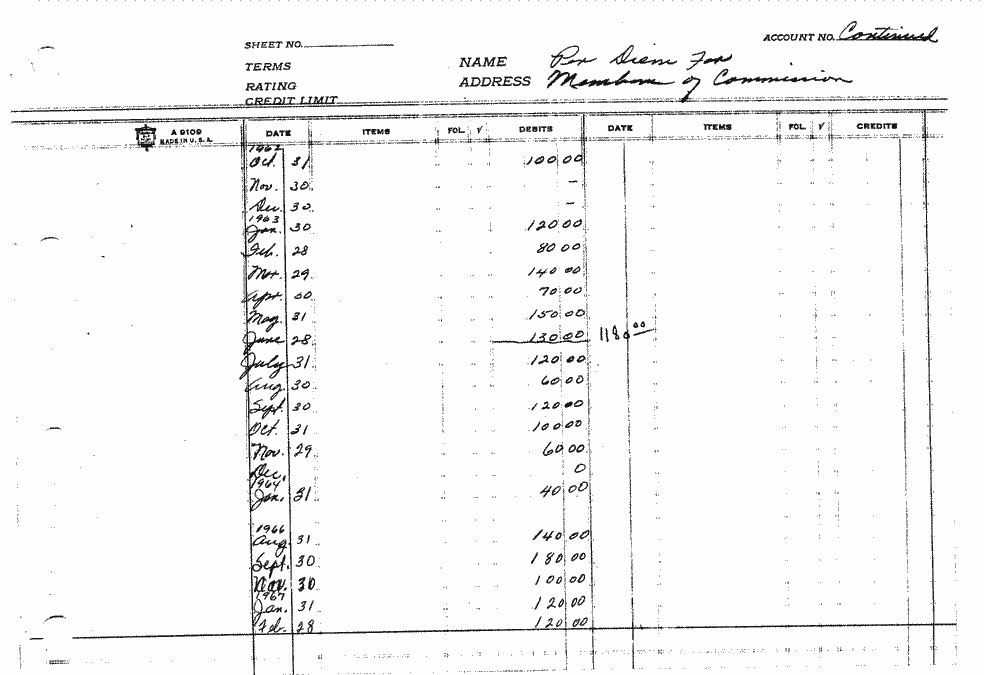 SHEET NO.
ACCOUNT NO. Continued
TERMS
NAME Per Diem For
RATING
ADDRESS Members of Commission
CREDIT LIMIT
A 9109
MADE IN U.S.A.
DATE ITEMS FOL. √ DEBITS DATE ITEMS FOL. √ CREDITS
1962
Oct. 31 100 00
Nov. 30 –
Dec. 30 –
1963
Jan. 30 120 00
Feb. 28 80 00
Mar. 29 140 00
Apr. 30 70 00
May 31 150 00
June 28 130 00 1180 00
July 31 120 00
Aug 30 60 00
Sept. 30 120 00
Oct. 31 100 00
Nov. 29 60 00
Dec. 0
1964
Jan. 31 40 00
1966
Aug. 31 140 00
Sept. 30 180 00
Nov. 30 100 00
1967
Jan. 31 120 00
Feb. 28 120 00